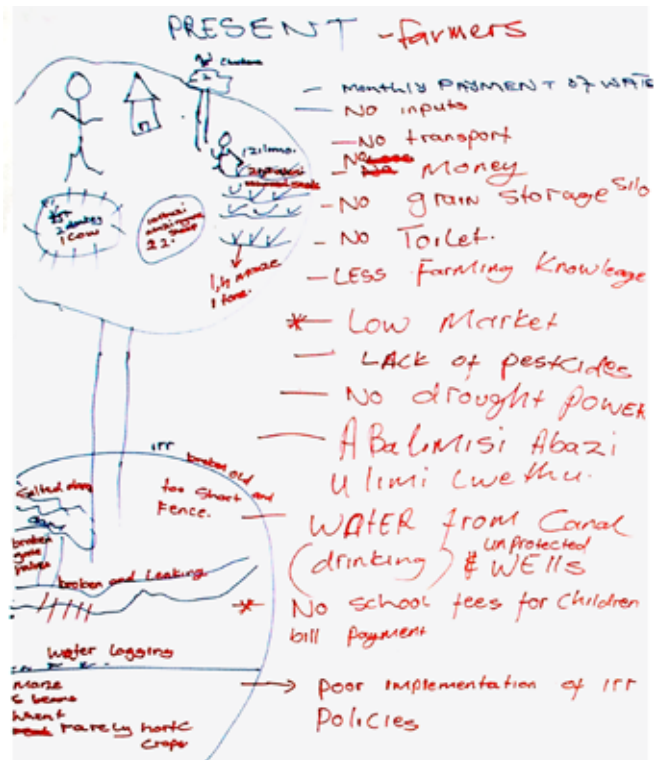 PRESENT - farmers
Chickens
- MONTHLY PAYMENT OF WATE
- NO inputs
- No transport
- No Money
- No grain storage silo
- No Toilet.
- LESS Farming Knowledge
* Low Market
- LACK of pesticides
- No drought POWER
- ABalimisi Abazi
ulimi lwethu.
- WATER from Canal
(drinking) & unprotected WELLS
* No school fees for Children
bill Payment
→ poor implementation of irr
Policies
2 donkey
1 cow
22.
1,4 maize
1 tone.
irr
broken old
too short and
Fence.
Salted dam
broken
gate
valves
broken and Leaking
Water logging
Maize
S beans
Wheat
rarely hortc
crops